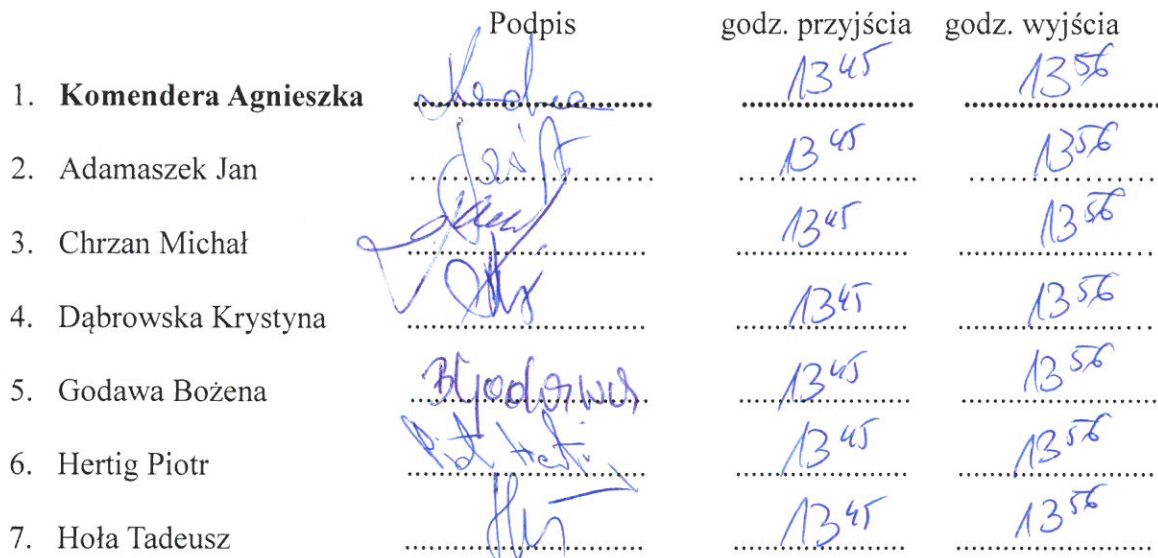 Podpis godz. przyjścia godz. wyjścia
1. Komendera Agnieszka 13 45 13 56
2. Adamaszek Jan 13 45 13 56
3. Chrzan Michał 13 45 13 56
4. Dąbrowska Krystyna 13 45 13 56
5. Godawa Bożena BGodawa 13 45 13 56
6. Hertig Piotr Piotr Hertig 13 45 13 56
7. Hoła Tadeusz 13 45 13 56